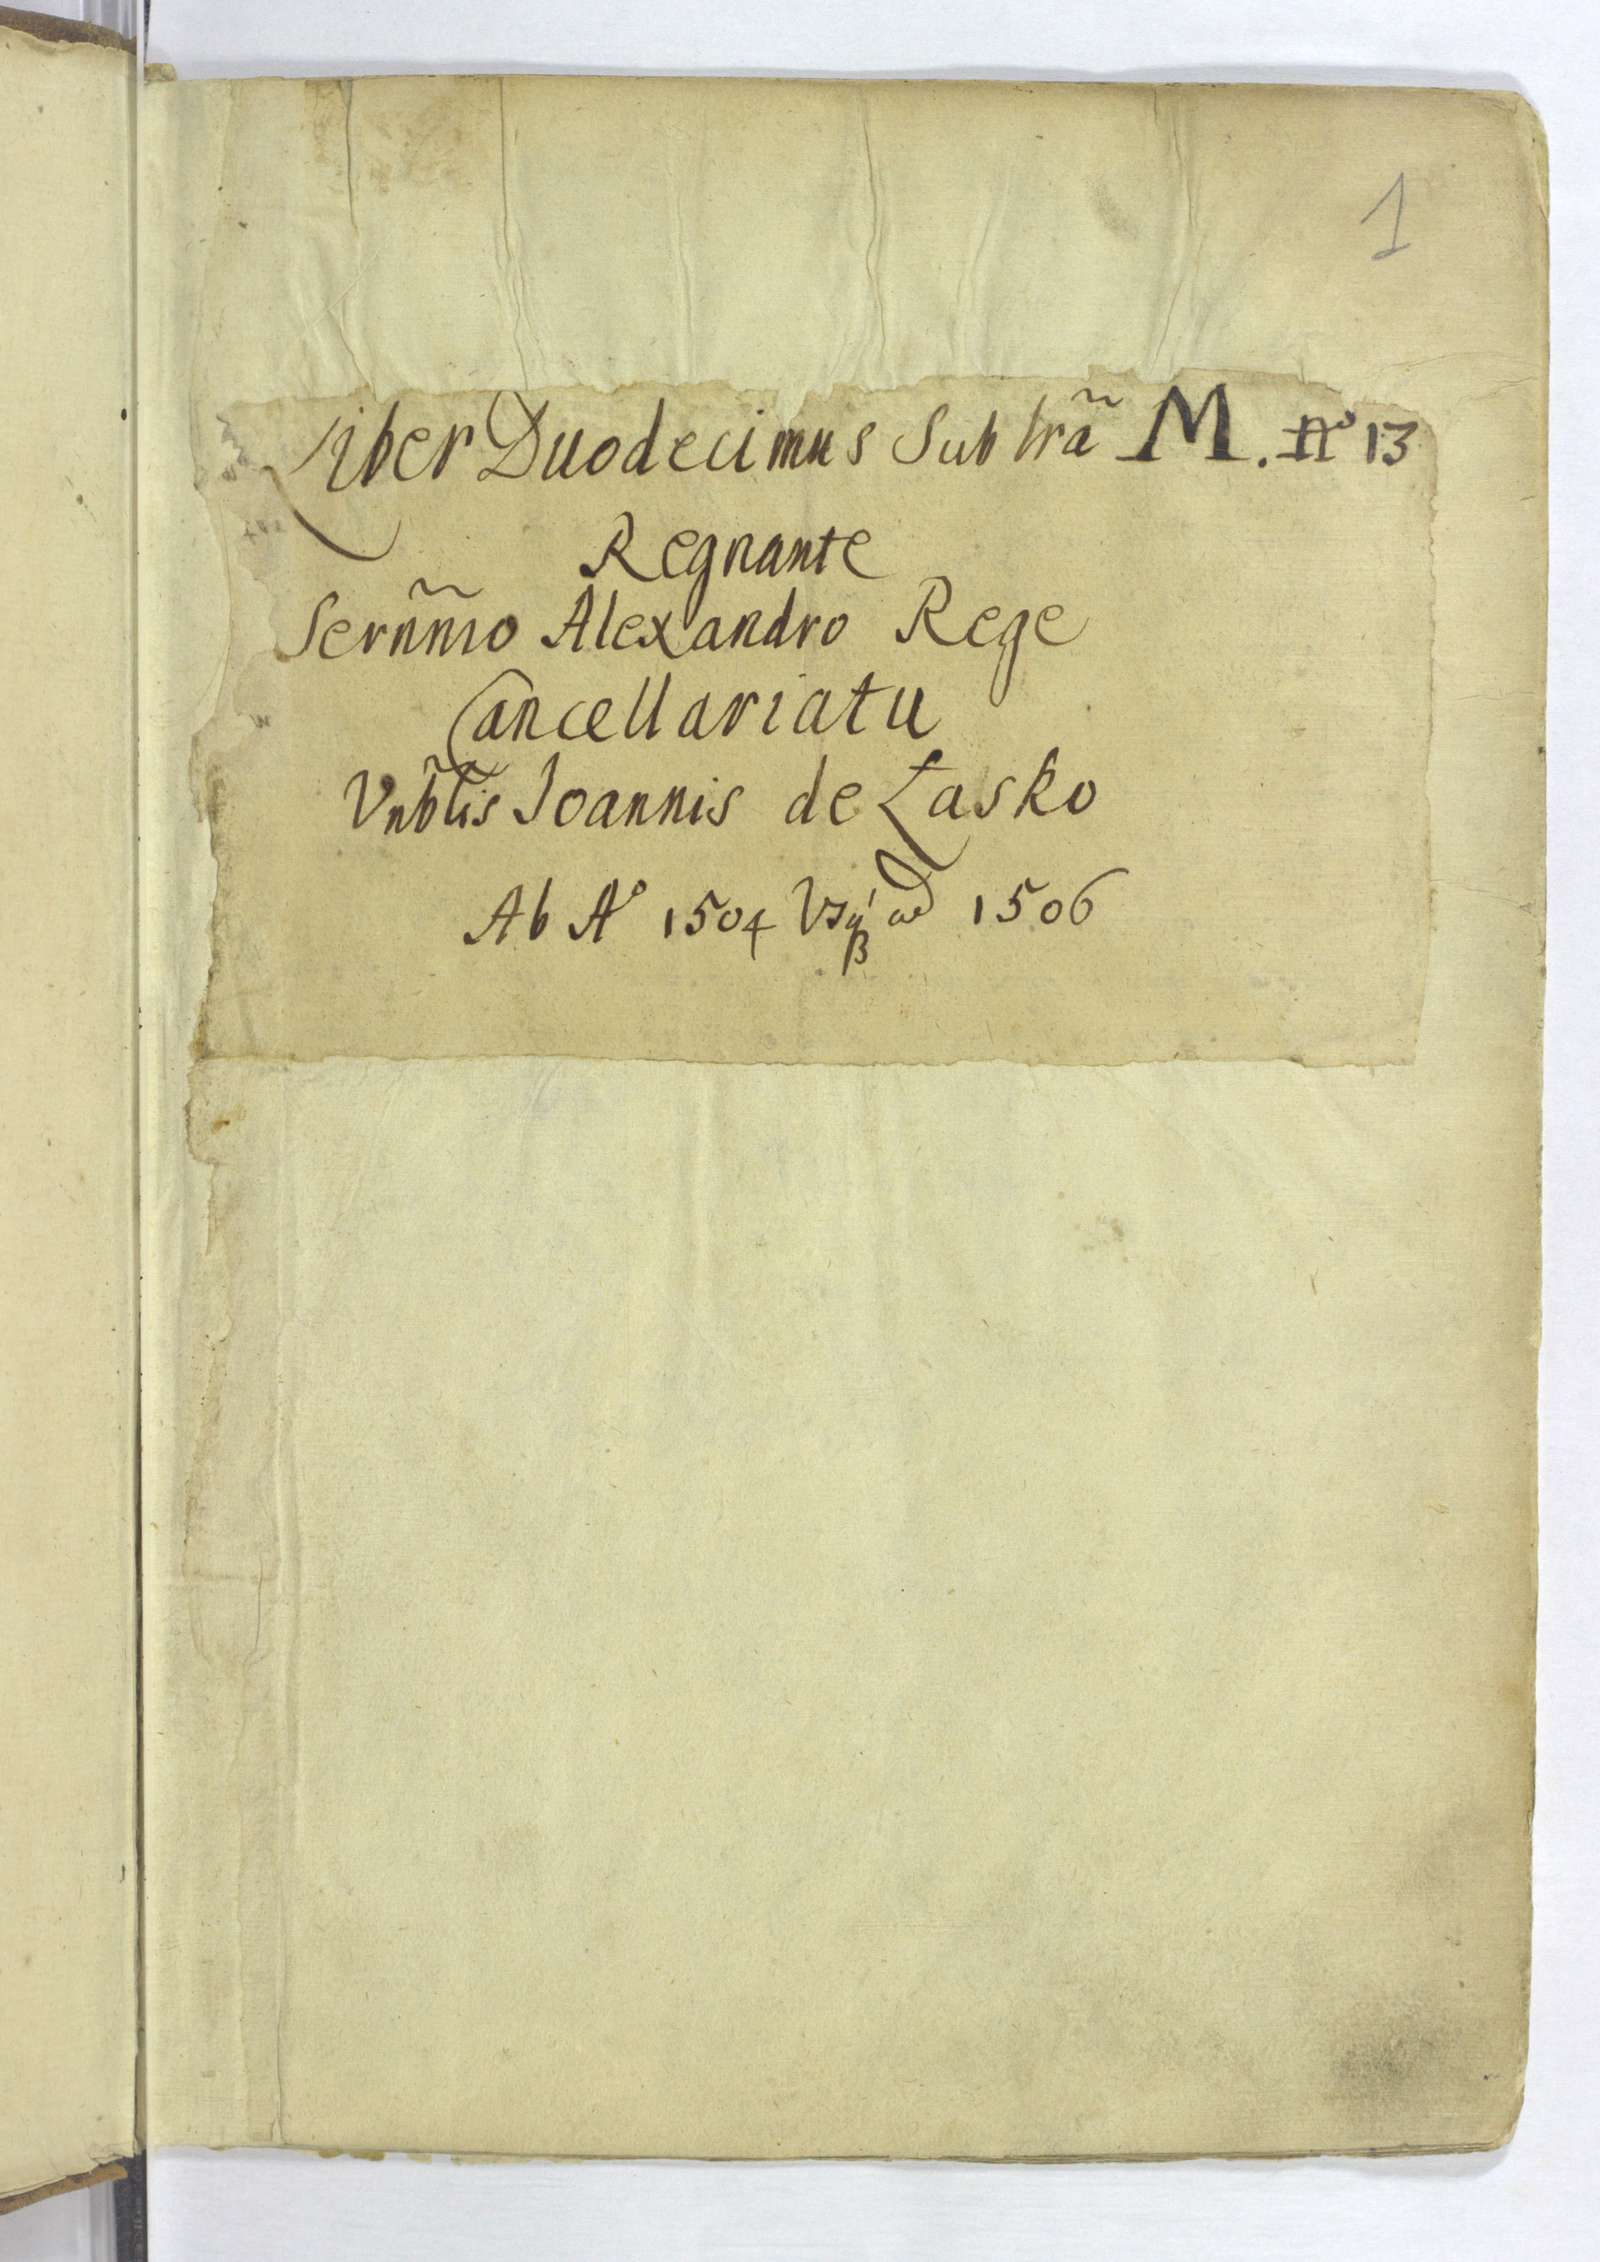 1
Liber Duodecimus Sub lrã M. N° 13
Regnante
Sernm̃o Alexandro Rege
Cancellariatu
Vnbĩlis Joannis de Łasko
Ab A° 1504 Vsq; ad 1506